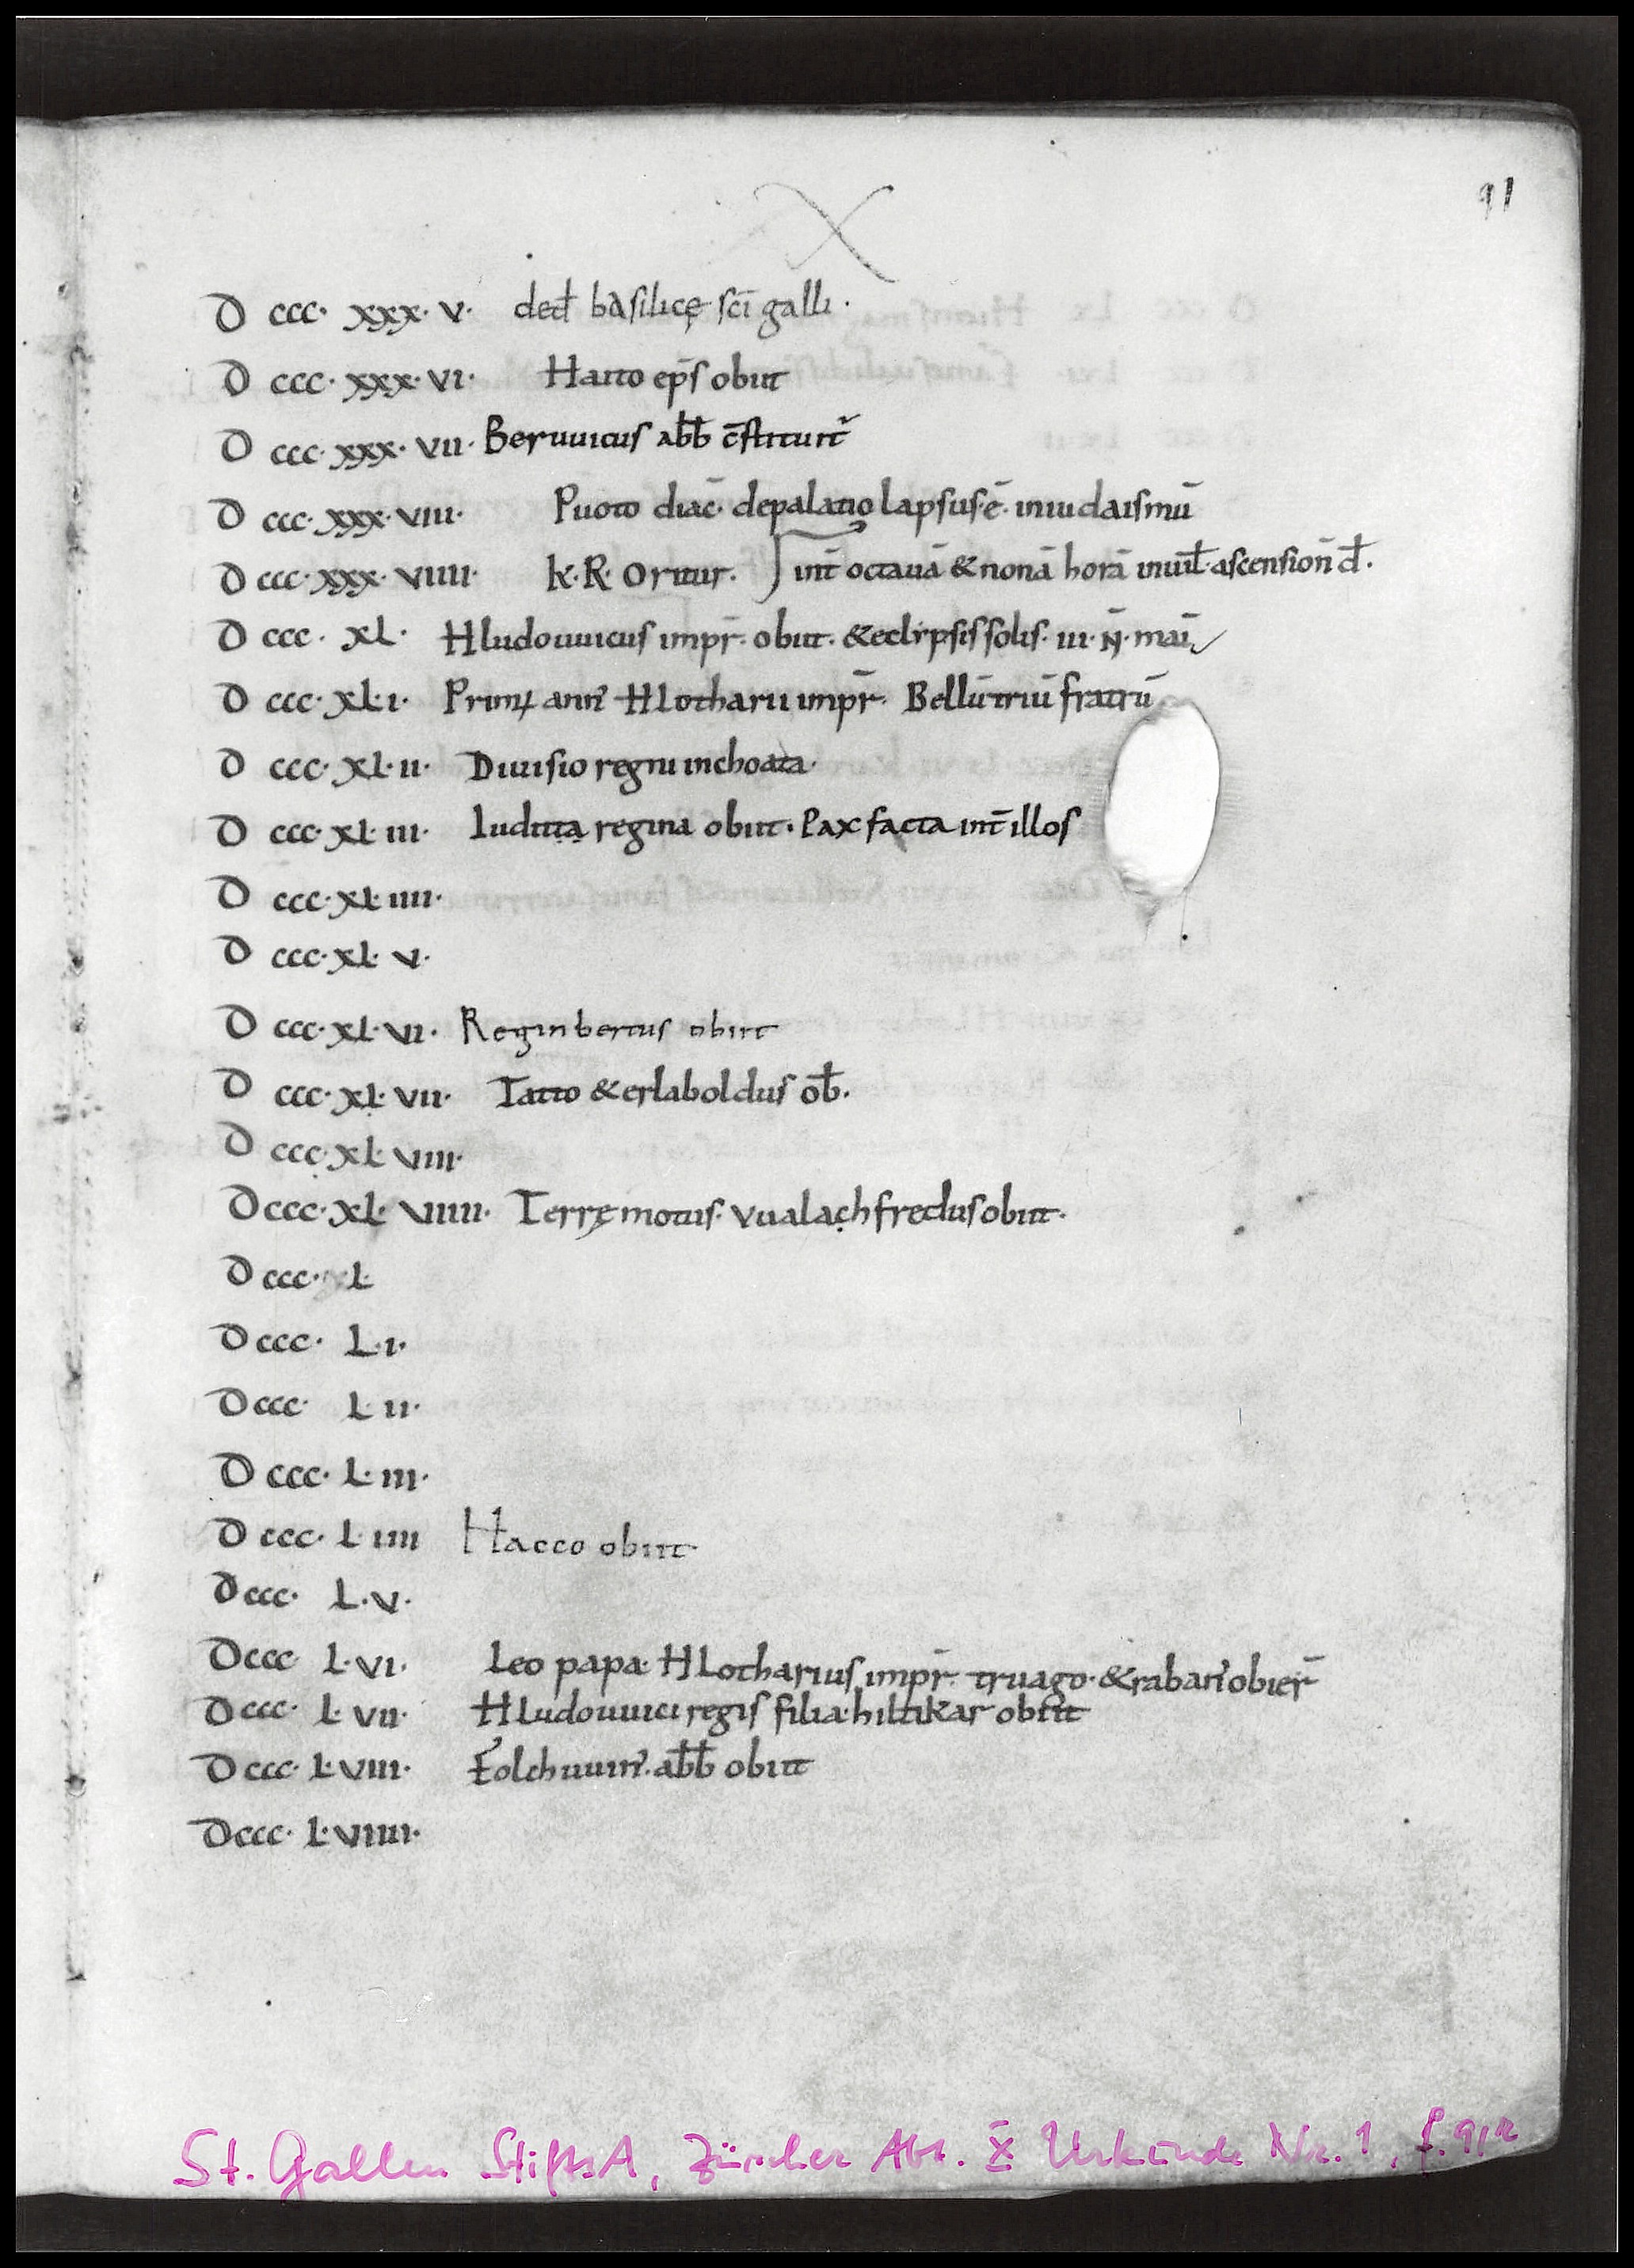 91
D ccc· xxx· v· ded̄ basilicę sc̄i galli·
D ccc· xxx· vi· Hatto ep̄s obiit
D ccc· xxx· vii· Beruuicus ab̄b c̄stituit᷑
D ccc· xxx· viii· Puoto diac̄· depalatio lapsus ē· iniudaismū
D ccc· xxx· viiii· K· R· Oritur· int̄ octauā & nonā horā inuiḡl· ascension̄ d̄·
D ccc· xl· Hludouuicus imp̄r· obiit· & eclipsis solis· iii· N̄· mai
D ccc· xl· i· Primꝰ ann̄ Hlotharii imp̄r· Bellū triū fratrū
D ccc· xl· ii· Diuisio regni inchoata·
D ccc· xl· iii· Iuditta regina obiit· Pax facta int̄ illos
D ccc· xl· iiii·
D ccc· xl· v·
D ccc· xl· vi· Reginbertus obiit
D ccc· xl· vii· Tatto & erlaboldus ob̄·
D ccc· xl· viii·
D ccc· xl· viiii· Terrę motus· vualachfredus obiit·
D ccc· l·
D ccc· L· i·
D ccc· L· ii·
D ccc· L· iii·
D ccc· L· iiii Hacco obiit
D ccc· L· v·
D ccc L· vi· Leo papa· Hlotharius imp̄r· truago· & raban̄ obier̄
D ccc· L· vii· Hludouuici regis filia· hiltikar obiit
D ccc· L· viii· Folchuuin̄· ab̄b obiit
D ccc· L· viiii·
St. Gallen StiftsA, Zürcher Abt. X Urkunde Nr. 1, f. 91r